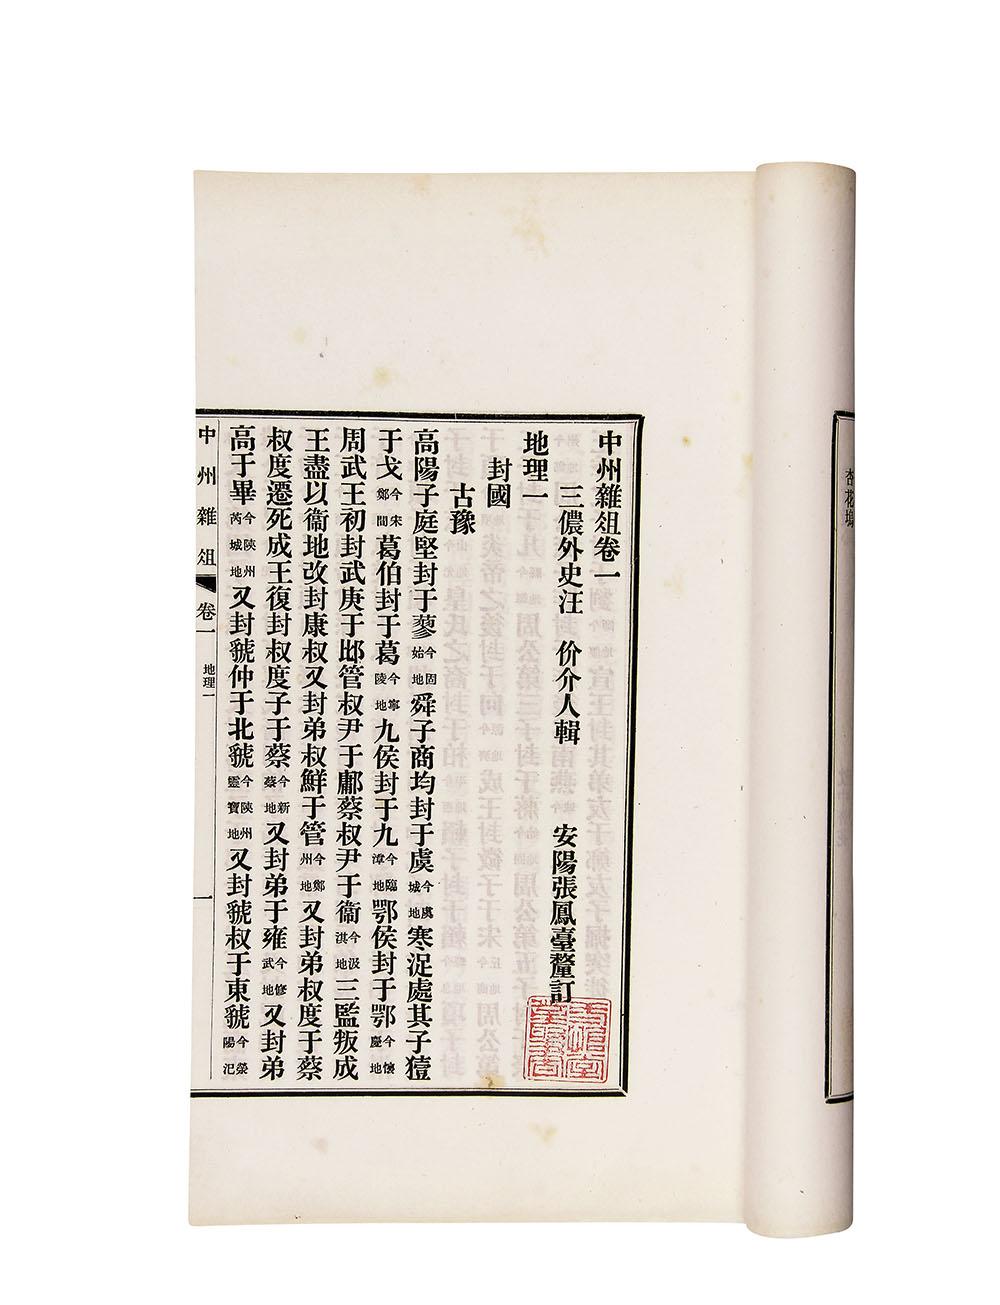 中州雜俎卷一
三儂外史汪 价介人輯 安陽張鳳臺釐訂
地理一
封國
古豫
高陽子庭堅封于蓼今固始地舜子商均封于虞今虞城地寒浞處其子豷
于戈今宋鄭間葛伯封于葛今寧陵地九侯封于九今臨漳地鄂侯封于鄂今懷慶地
周武王初封武庚于邶管叔尹于鄘蔡叔尹于衞今汲淇地三監叛成
王盡以衞地改封康叔又封弟叔鮮于管今鄭州地又封弟叔度于蔡
叔度遷死成王復封叔度子于蔡今新蔡地又封弟于雍今修武地又封弟
高于畢今陝州芮城地又封虢仲于北虢今陝州靈寶地又封虢叔于東虢今滎陽汜
中州雜俎 卷一 地理一 一
杏花塢